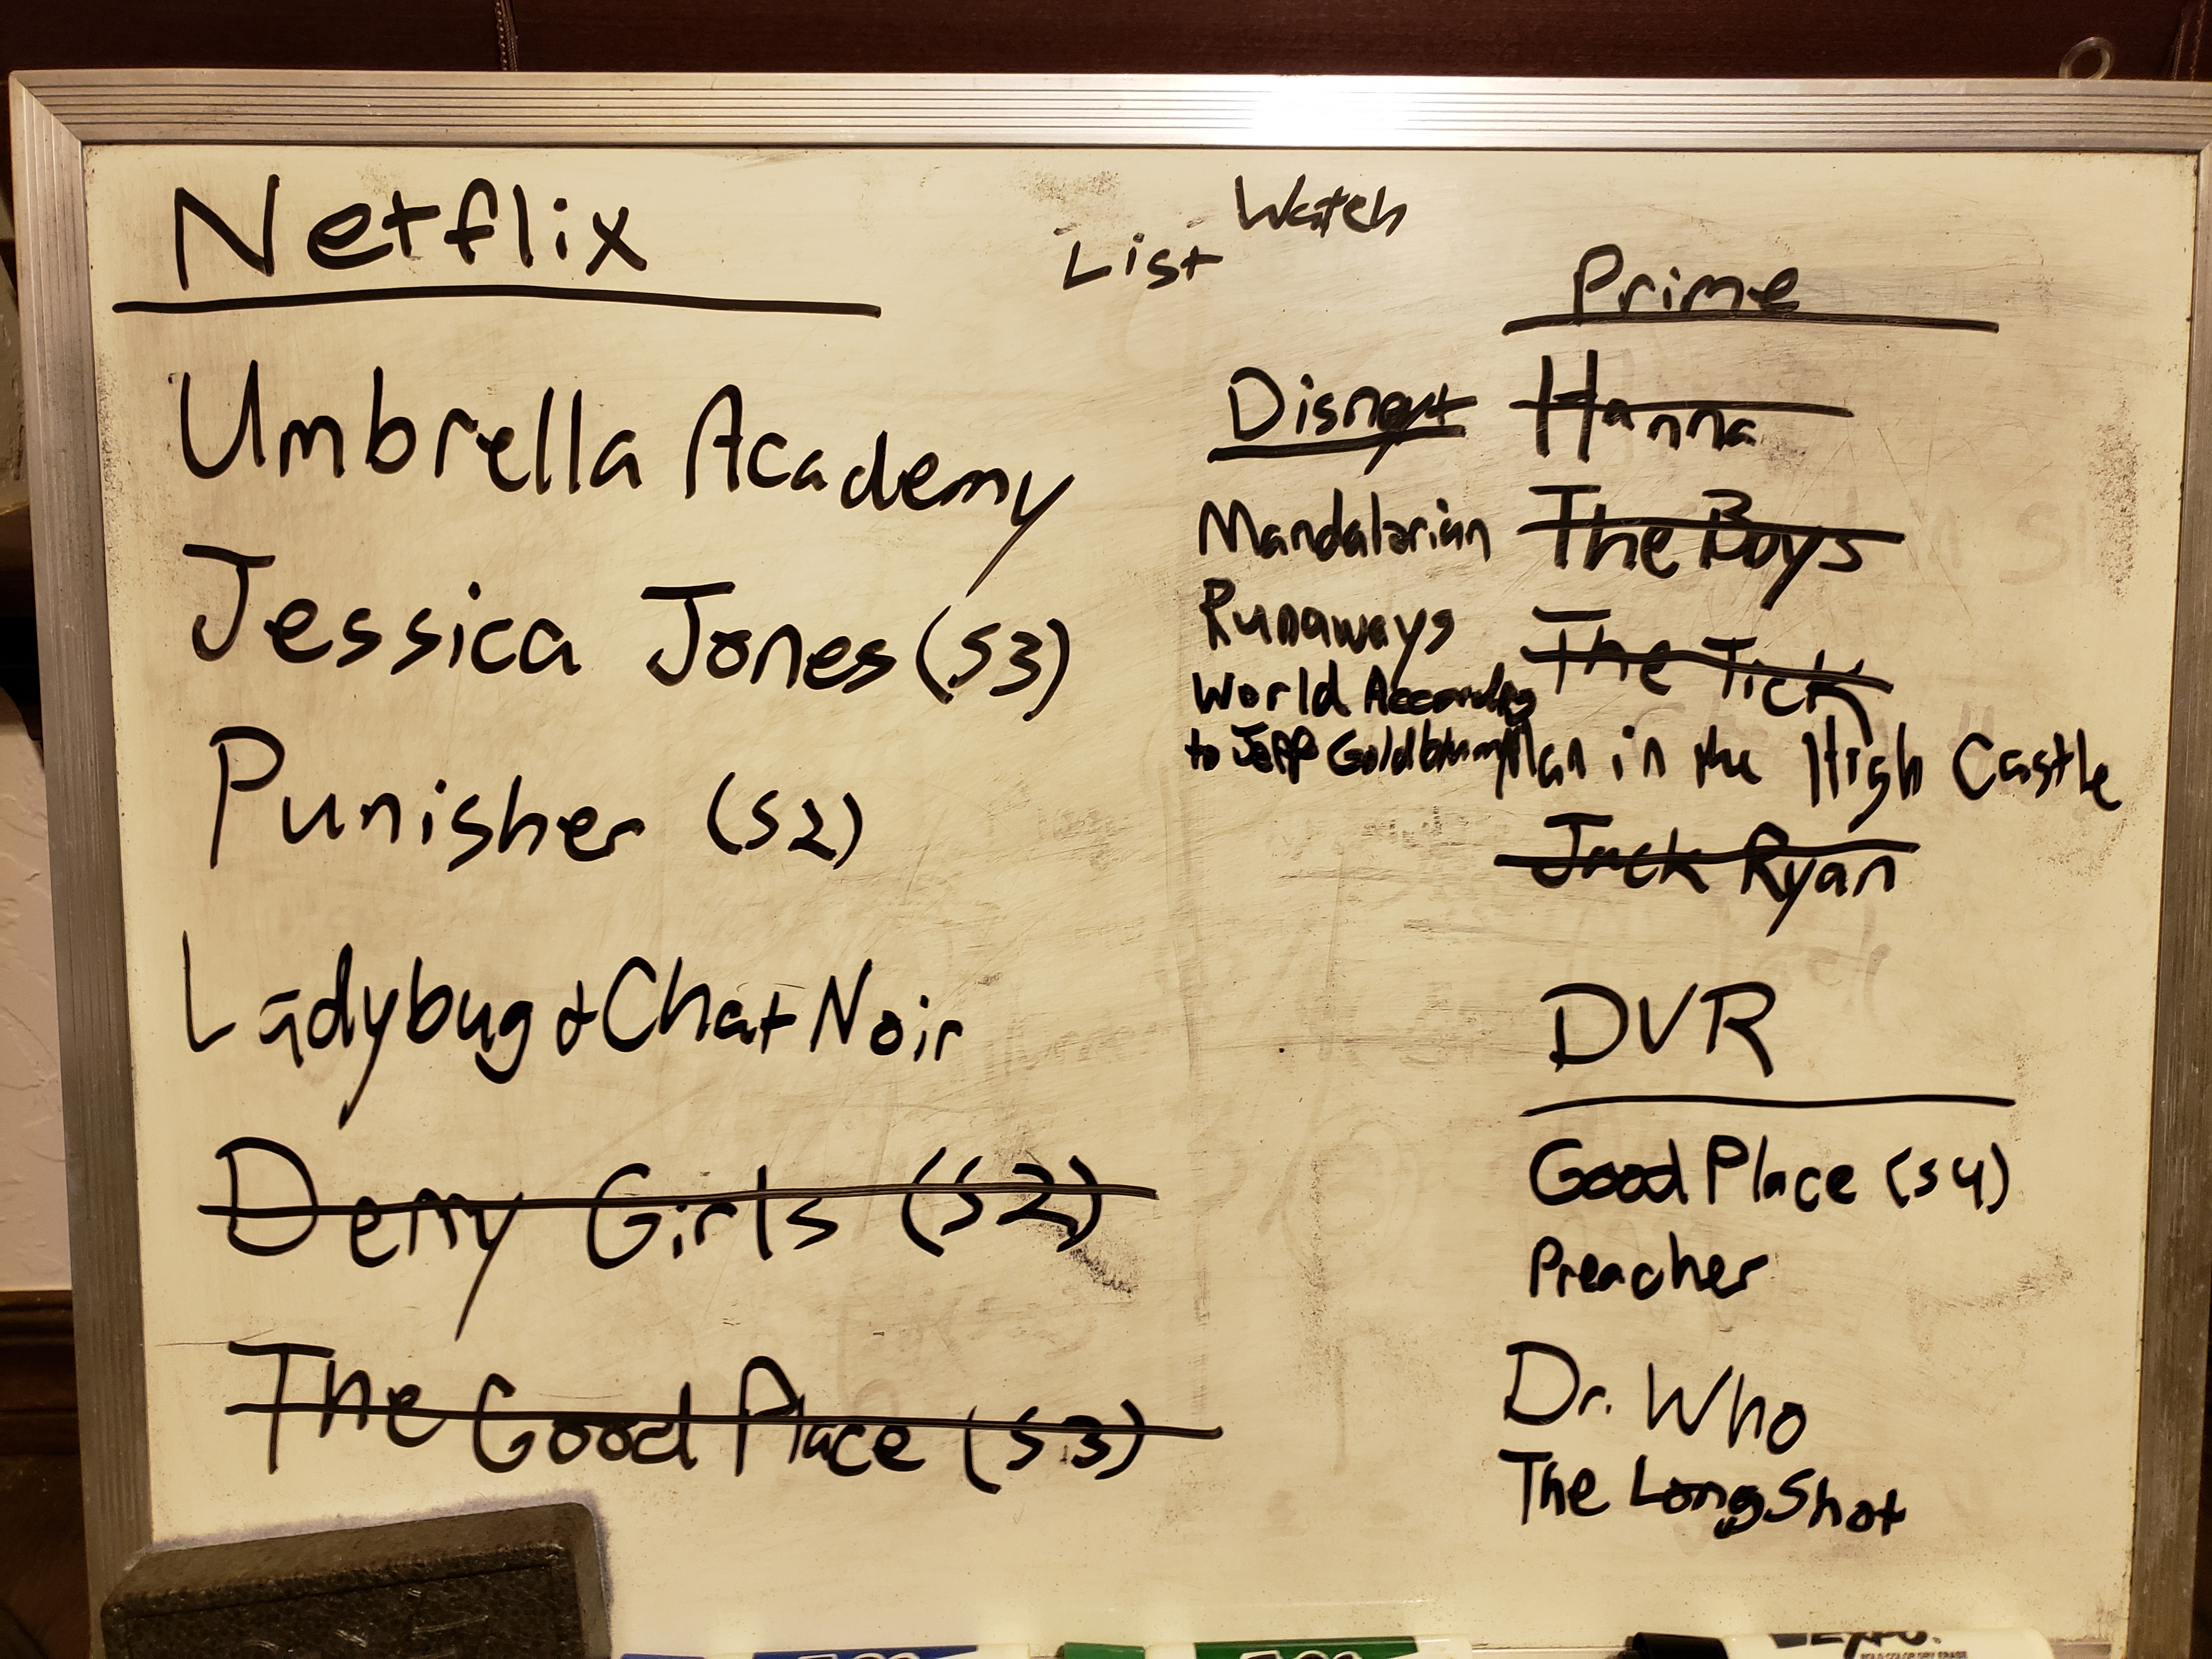 Netflix
Umbrella Academy
Jessica Jones (S3)
Punisher (S2)
Ladybug + Chat Noir
Derry Girls (S2)
The Good Place (S3)
Watch
List
Disney+
Mandalorian
Runaways
World According
to Jeff Goldblum
Prime
Hanna
The Boys
The Tick
Man in the High Castle
Jack Ryan
DVR
Good Place (S4)
Preacher
Dr. Who
The Long Shot
EXPO